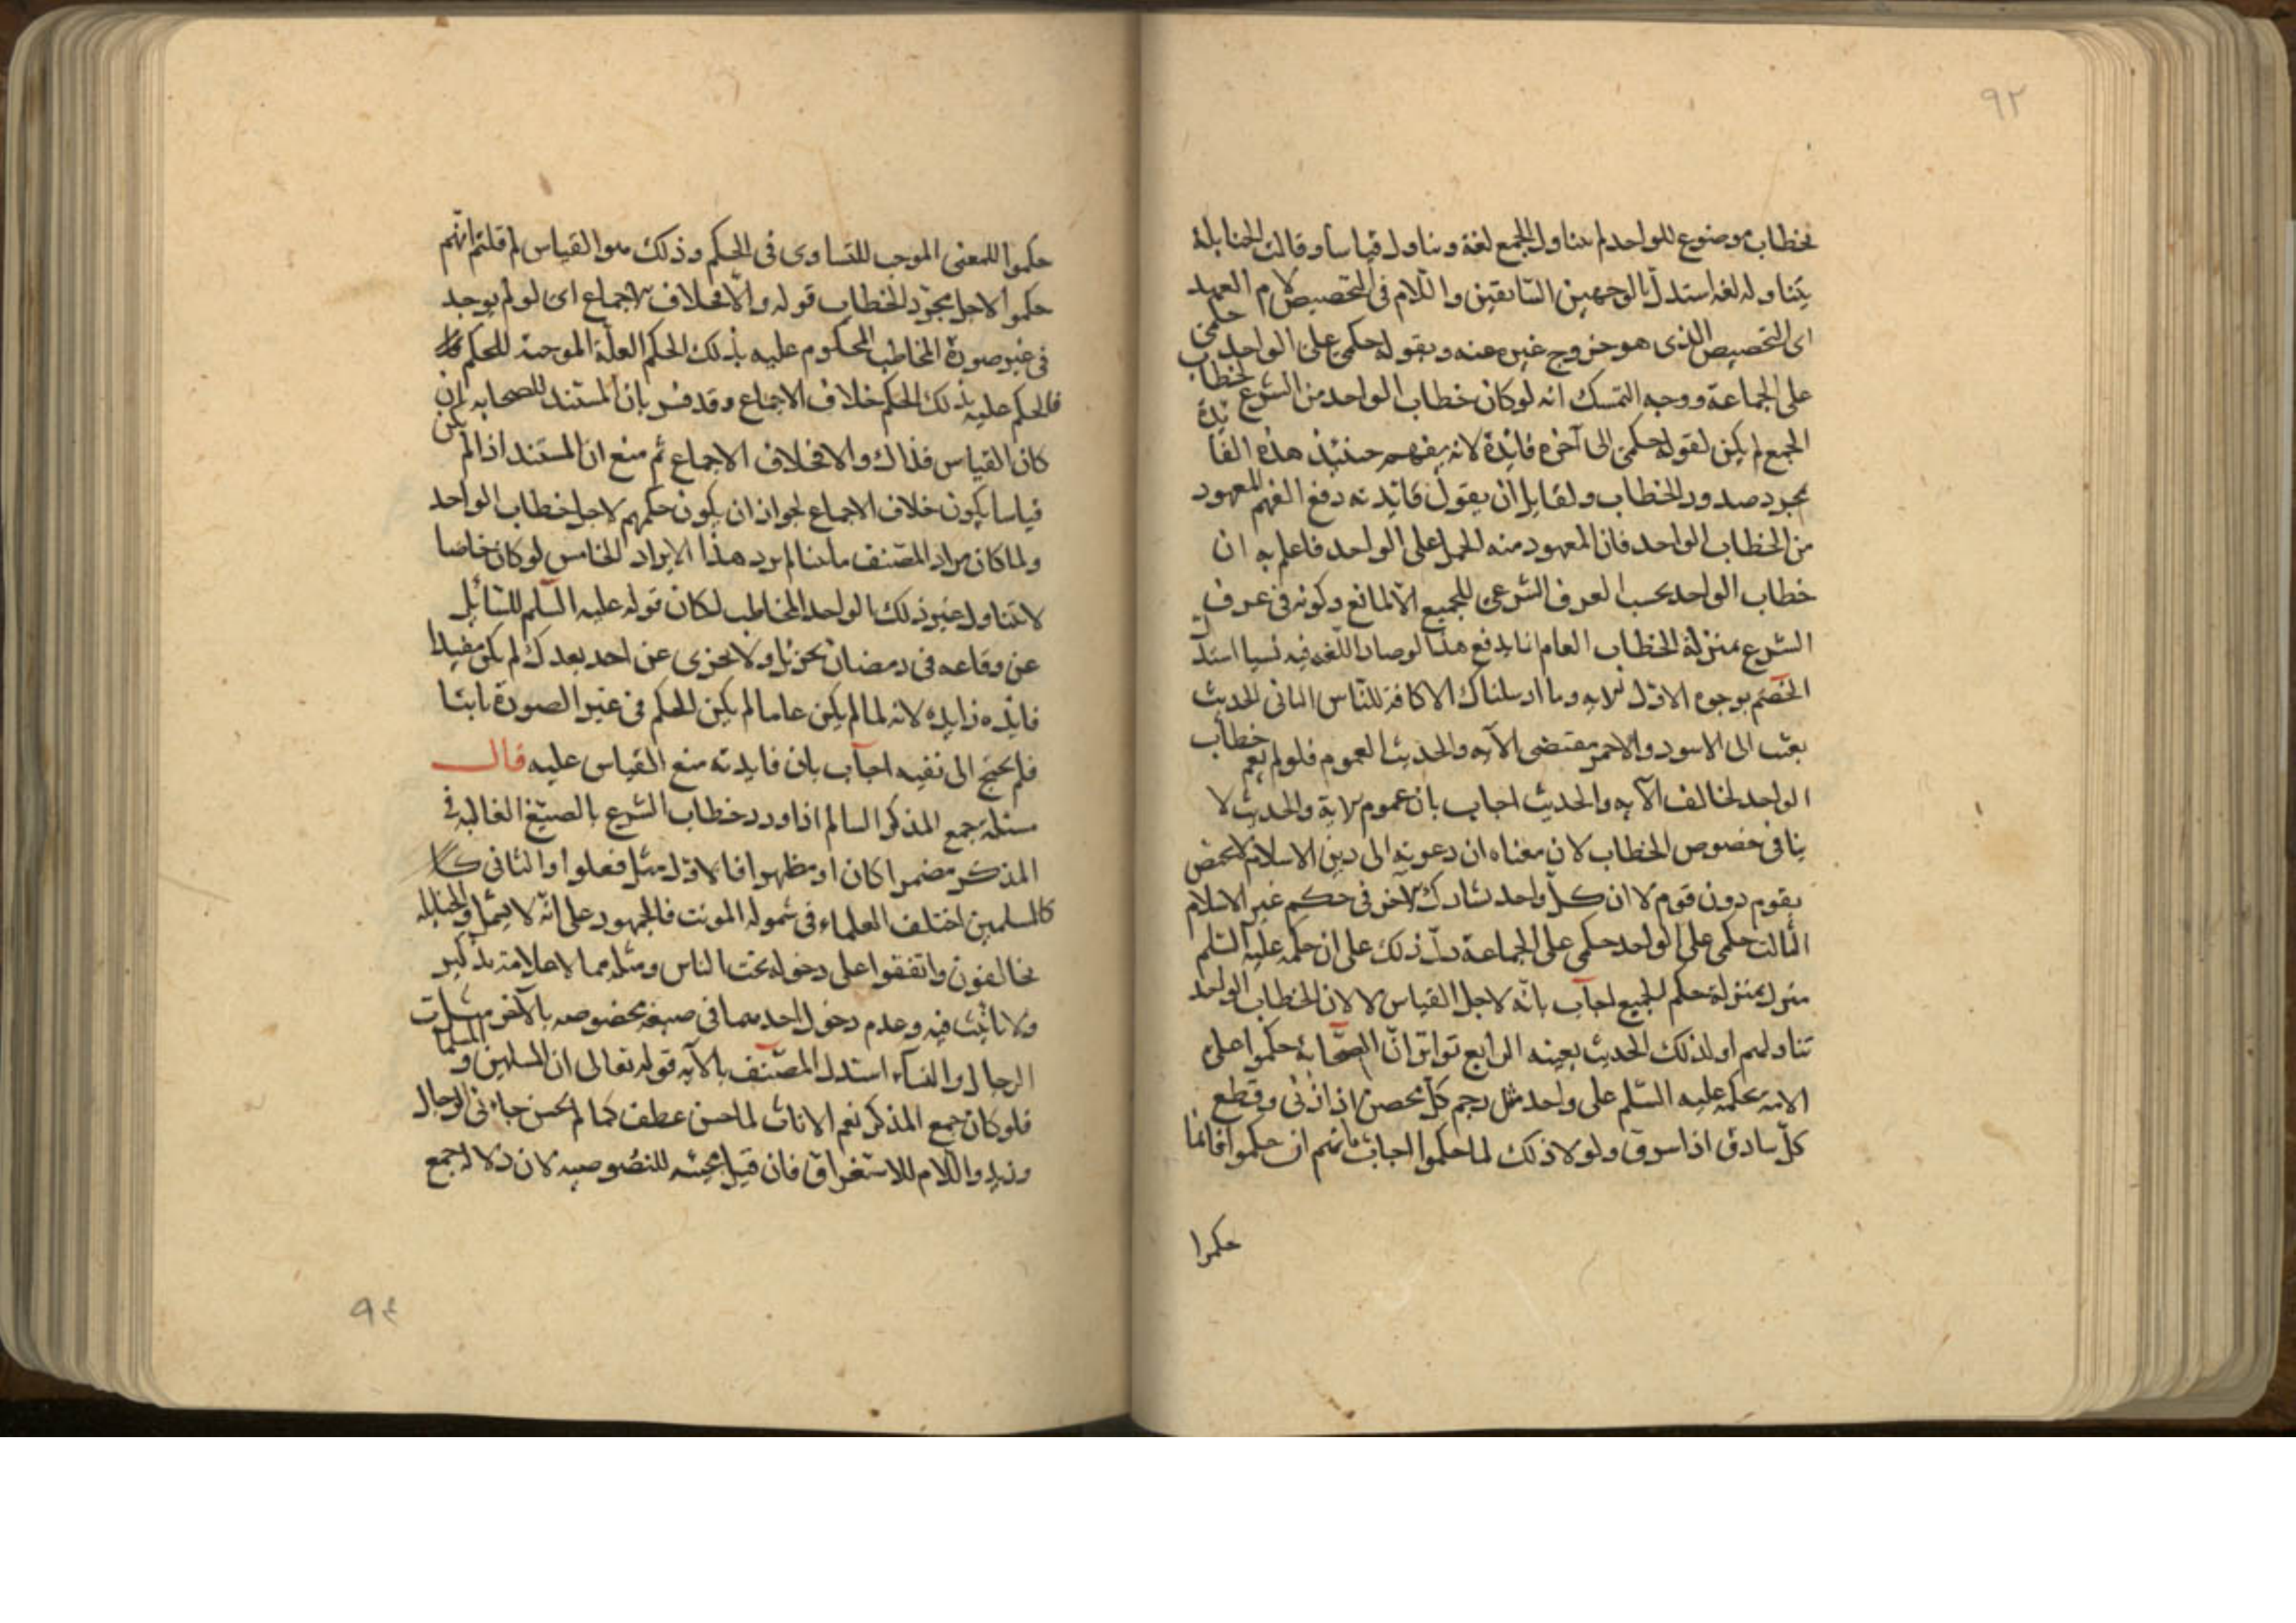 ٩٢
بخطاب موضوع للواحد لم يتناول الجمع لغة ويتناول قياسا وقالت الحنابلة
يتناوله لغة استدل بالوجهين السابقين واللام في التخصيص لام العهد
اى التخصيص الذى هو خروج غيره عنه وبقوله حكمي على الواحد حكمي
على الجماعة ووجه التمسك انه لو كان خطاب الواحد من الشرع لخطاب
الجمع لم يكن لقوله حكمي الى آخره فايدة لانه يفهم حينئذ هذه الفائدة
بمجرد صدور الخطاب ولقايل ان يقول فايدته دفع الفهم المعهود
من الخطاب الواحد فان المعهود منه الحمل على الواحد فاعلم به ان
خطاب الواحد بحسب العرف الشرعى للجميع الا لمانع وكونه في عرف
الشرع بمنزلة الخطاب العام انما يدفع هذا لو صار اللغة فيه نسيا استدل
الخصم بوجوه الاول الاية وما ارسلناك الا كافة للناس الثاني الحديث
بعثت الى الاسود والاحمر مقتضى الآية والحديث العموم فلو لم يعم خطاب
الواحد لخالف الآية والحديث اجاب بان عموم الاية والحديث لا
ينافى خصوص الخطاب لان معناه ان دعوته الى دين الاسلام لا تختص
بقوم دون قوم لا ان كل واحد يشارك الآخر في حكم غير الاسلام
الثالث حكمى على الواحد حكمى على الجماعة دل ذلك على ان حكمه عليه السلم
منزل بمنزلة حكم الجميع اجاب بانه لاجل القياس لا لان الخطاب الواحد
تناولهم او لذلك الحديث بعينه الرابع تواتر ان الصحابة حكموا على
الامة بحكمه عليه السلم على واحد مثل رجم كل محصن اذا زنى وقطع
كل سارق اذا سرق ولولا ذلك لما حكموا اجاب بانهم ان حكموا فانما
حكموا
حكموا للمعنى الموجب للتساوى فى الحكم وذلك هو القياس لم قلتم انهم
حكموا لاجل مجرد الخطاب قوله والا فخلاف الاجماع اى لو لم يوجد
فى غير صورة المخاطب المحكوم عليه بذلك الحكم العلة الموجبة للحكم
فالحكم عليه بذلك الحكم خلاف الاجماع وقد فسر بان المستند للصحابه ان
كان القياس فذاك والا فخلاف الاجماع ثم منع ان المستند اذا لم يكن
قياسا يكون خلاف الاجماع لجواز ان يكون حكمهم لاجل خطاب الواحد
ولما كان مراد المصنف ما بينا لم يرد هذا الايراد الخامس لو كان خاصا
لا تتناول غير ذلك الواحد المخاطب لكان قوله عليه السلم للسائل
عن وقاعه فى رمضان تجزيك ولا تجزى عن احد بعدك لم يكن مفيدا
فايده زايده لانه لما لم يكن عاما لم يكن الحكم فى غير الصورة ثابتا
فلم يحتج الى نفيه اجاب بان فايدته منع القياس عليه قال
مسئلة جمع المذكر السالم اذا ورد خطاب الشرع بالصيغ الغالبه فى
المذكر مضمرا كان او مظهرا فالاول مثل فعلوا والثانى
كالمسلمين اختلف العلماء فى شموله المونث فالجمهور على انه لا يشمل والحنابله
يخالفون واتفقوا على دخوله تحت الناس ومثله مما لا علامة تذكير
ولا تانيث فيه وعدم دخول احدهما فى صيغة مخصوصه بالآخر مثل
الرجال والنسآء استدل المصنف بالآيه قوله تعالى ان المسلمين والمسلمات
فلو كان جمع المذكر نعم الاناث لما حسن عطف كما لم يحسن جاءنى الرجال
وزيد واللام للاستغراق فان قيل مجيئه للنصوصيه لان دلالة جمع
٩٤